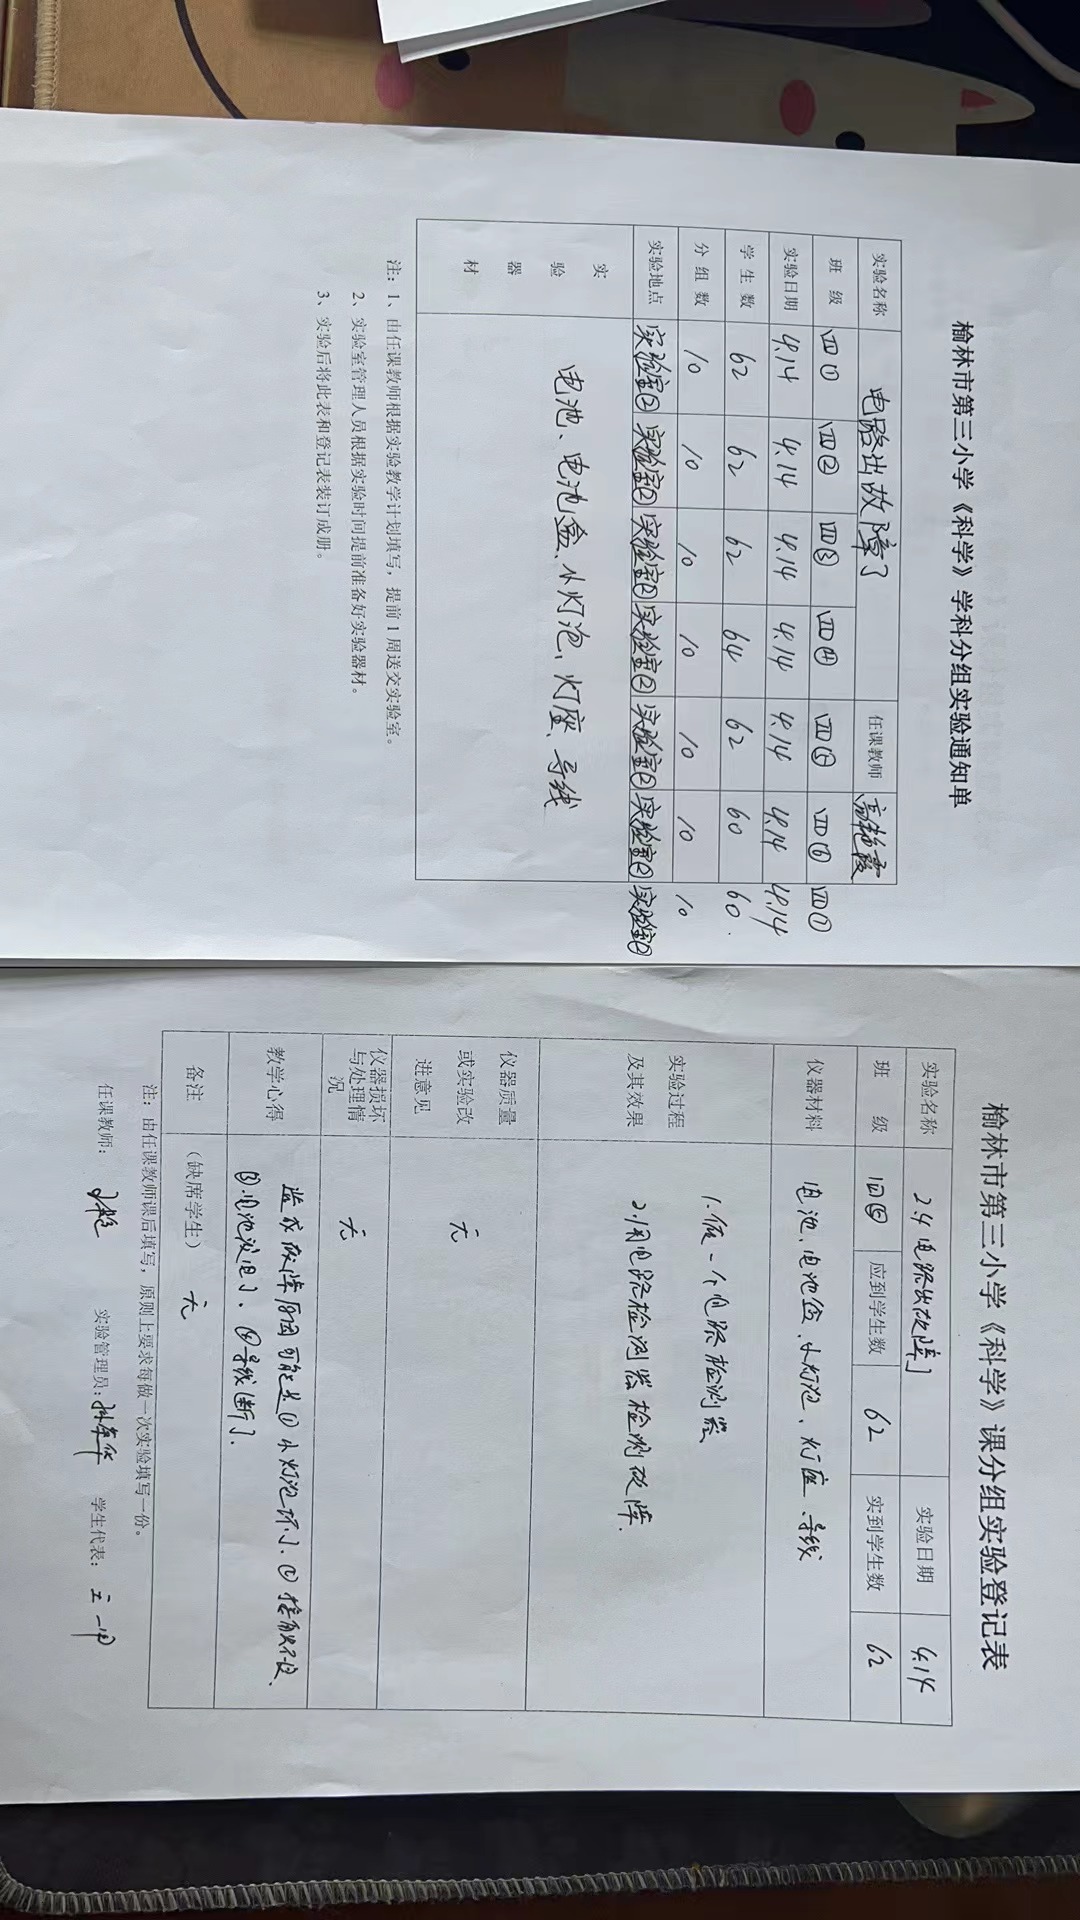 榆林市第三小学《科学》学科分组实验通知单
实验名称 电路出故障了 任课教师 高艳霞
班级 四① 四② 四③ 四④ 四⑤ 四⑥ 四⑦
实验日期 4.14 4.14 4.14 4.14 4.14 4.14 4.14
学生数 62 62 62 64 62 60 60.
分组数 10 10 10 10 10 10 10
实验地点 实验室② 实验室② 实验室② 实验室② 实验室② 实验室② 实验室②
实验器材 电池、电池盒、小灯泡、灯座、导线
注：1、由任课教师根据实验教学计划填写，提前1周送交实验室。
2、实验室管理人员根据实验时间提前准备好实验器材。
3、实验后将此表和登记表装订成册。
榆林市第三小学《科学》课分组实验登记表
实验名称 2.4电路出故障了 实验日期 4.14
班级 四⑤ 应到学生数 62 实到学生数 62
仪器材料 电池、电池盒、小灯泡、灯座、导线
实验过程及其效果 1.做一个电路检测器
2.用电路检测器检测故障.
仪器质量或实验改进意见 无
仪器损坏与处理情况 无
教学心得 造成故障原因可能是①小灯泡坏了.②接触不良.
③电池没电了.④导线断了.
备注 （缺席学生） 无
注：由任课教师课后填写，原则上要求每做一次实验填写一份。
任课教师： 实验管理员： 学生代表： 王一